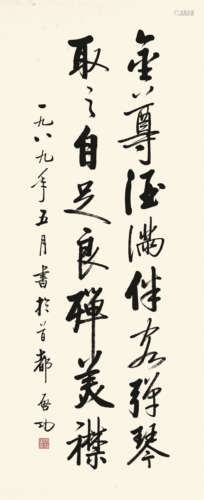 金尊酒滿伴客彈琴
取之自足良殫美襟
一九八九年五月書於首都 啟功